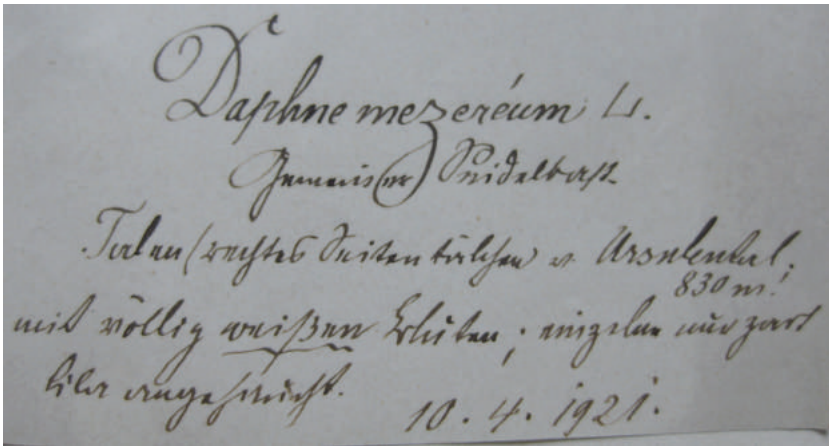 Daphne mezeréum L.
Gemein(er) Seidelbast
(rechtes Seitentälchen v. Ursental;
830 m!
mit völlig weißen Blüten; einzelne nur zart
lila angehaucht.
10. 4. 1921.